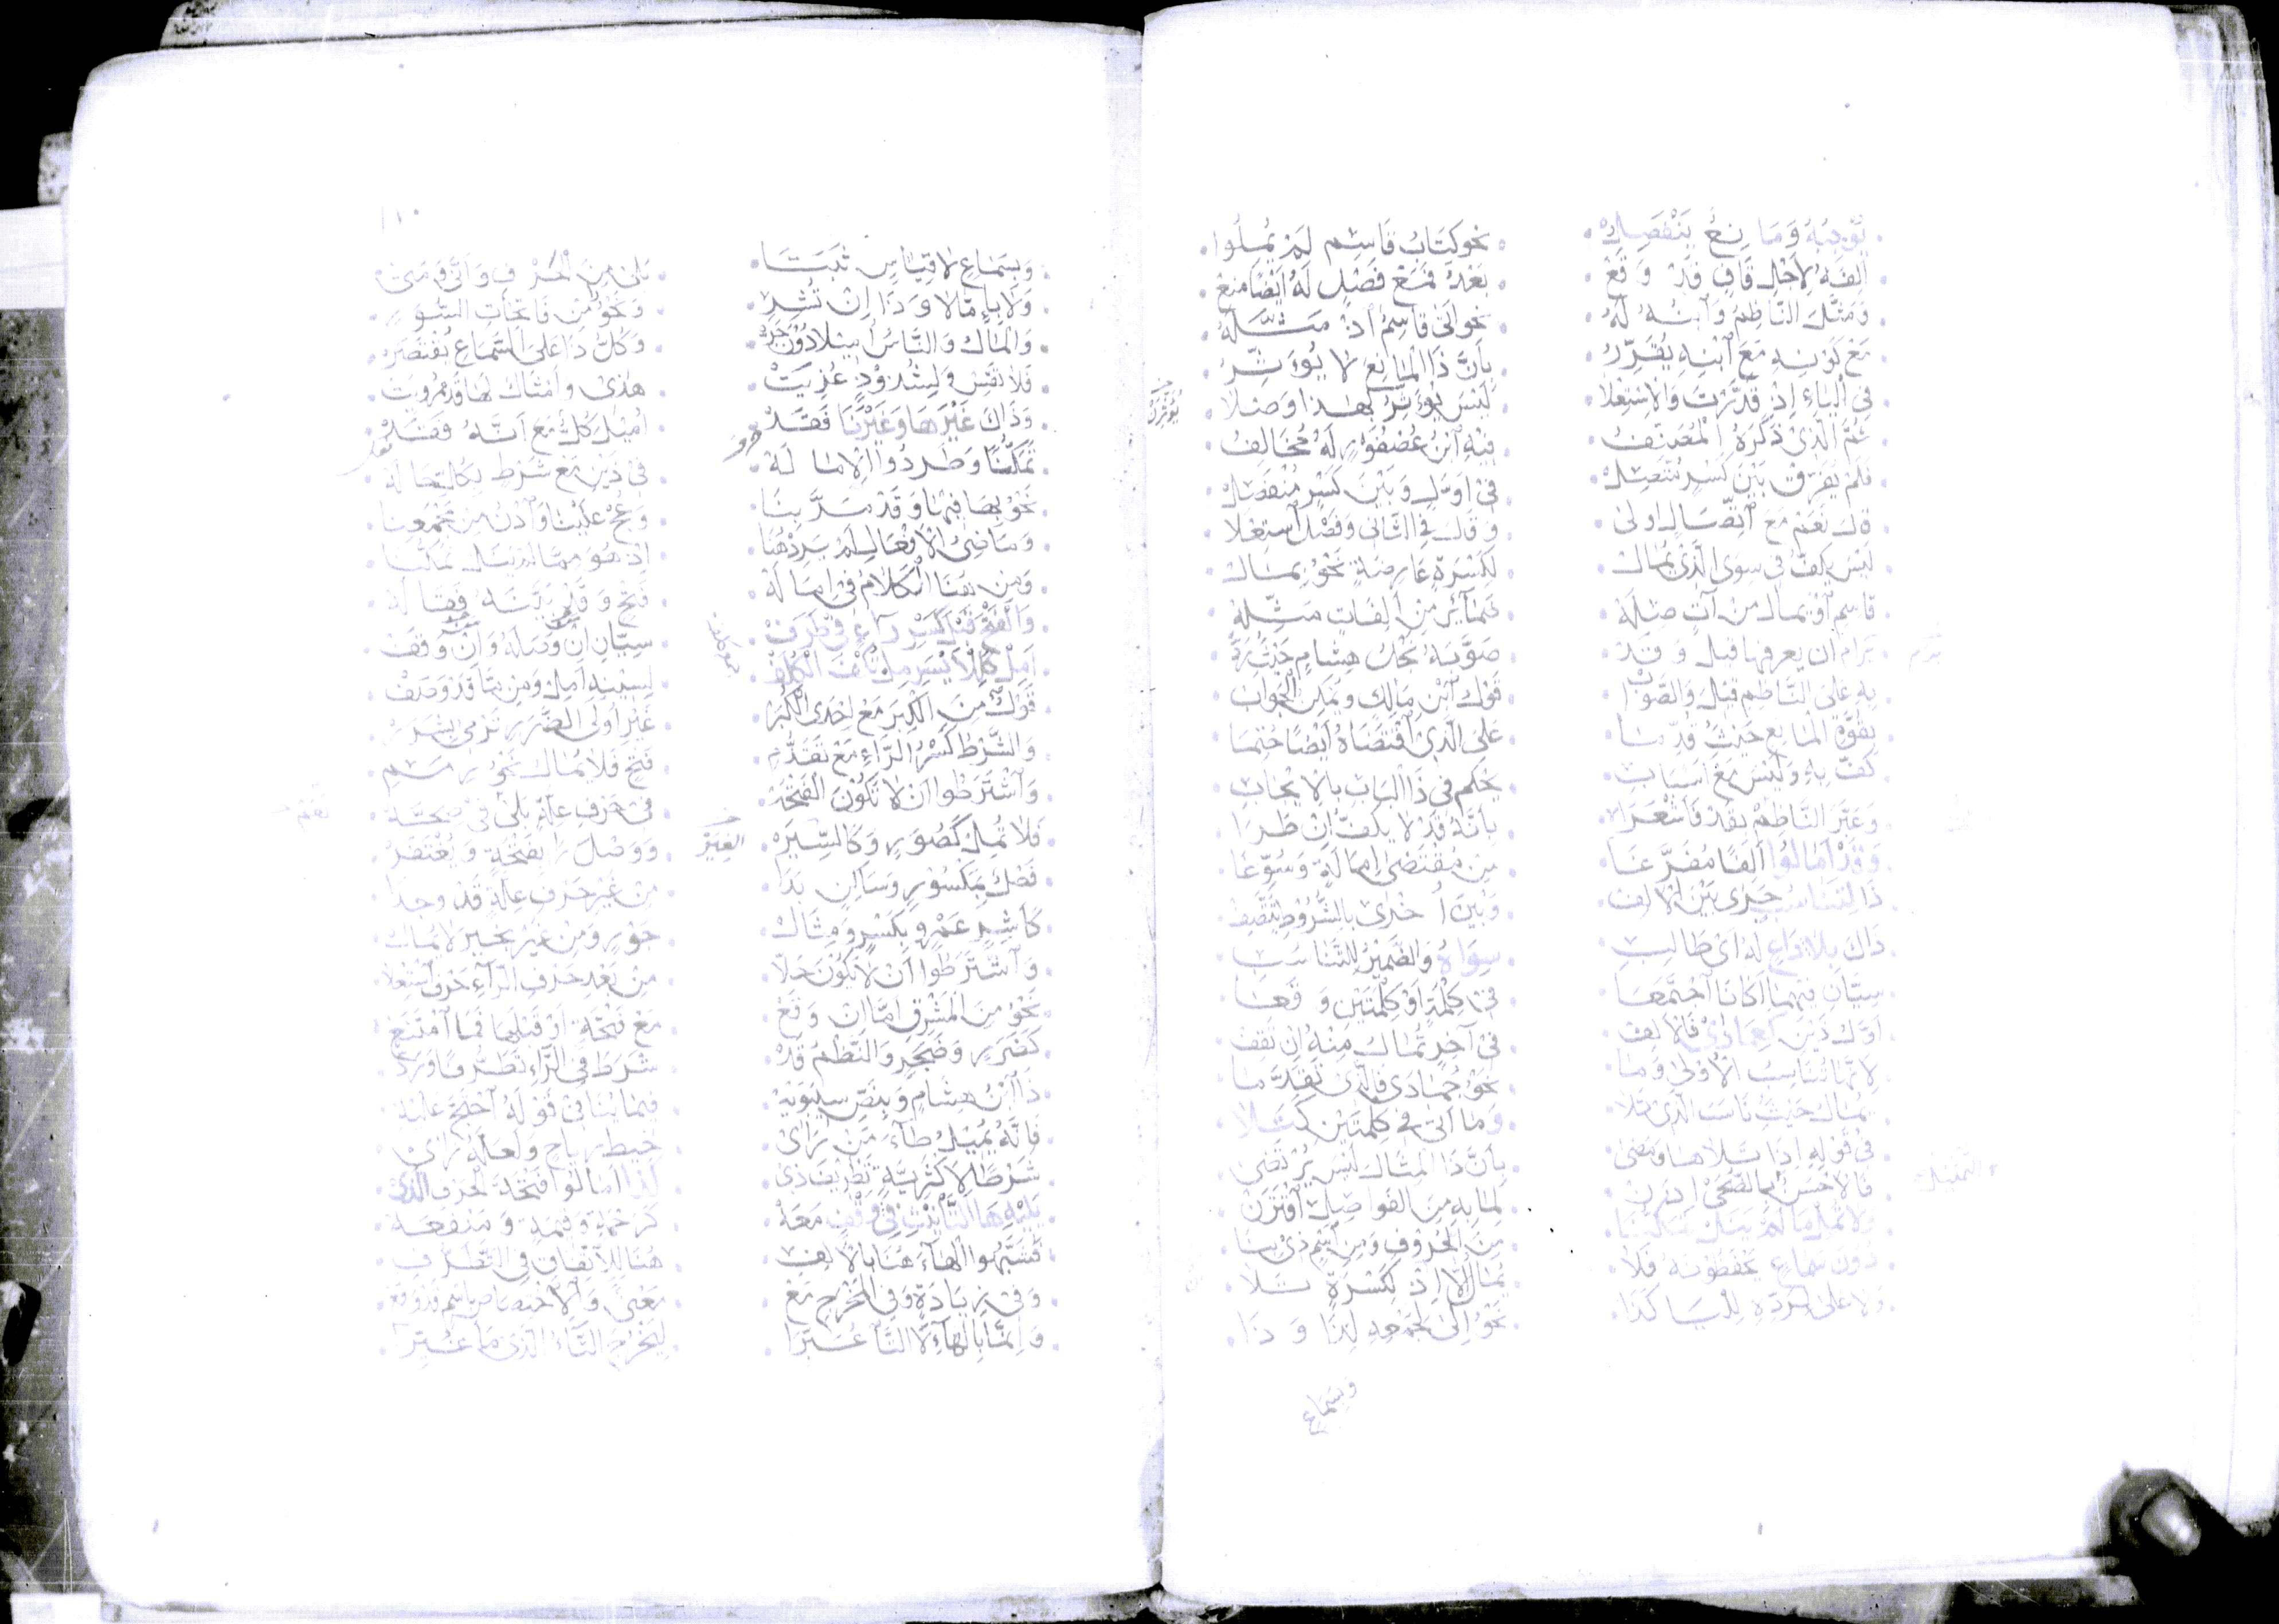 يوجبه وما نع بنفصل نحو كتاب قاسم لم يميلوا
الفه لاجل قاف قد وقع بعد فمنع فصل له ايضا منع
ومثل الناظم وابنه له نحو اتى قاسم اذ مثله
مع كونه مع ابنه يقرر بان ذا المانع لا يؤثر
في الياء اذ قدرت والاستعلا ليس يؤثر بهذا وصلا
ثم الذي ذكره المصنف فيه ابن عصفور له مخالف
فلم يفرق بين كسر متصل في اول وبين كسر منفصل
قال نعم مع اتصال اولى وقال في الثاني وفصل استعلا
ليس يكف في سوى الذي يمال لكسرة عارضة نحو بمال
قاسم او يمال من آت صله فمأثر من الفات مثله
يرام ان يعرفها قبل وقد صوبه نجل هشام حيث رد
به على الناظم قبل والصواب قول ابن مالك ويمكن الجواب
بقوة المانع حيث قدما على الذي اقتضاه ايضا حتما
كف به وليس مع اسباب يحكم في ذا الباب بالايجاب
وعبر الناظم بقد فاشعرا بانه قد لا يكف ان طرا
وقد امالوا الفا مفرعا من مقتضى امالة وسوغا
ذا لتناسب جرى بين الالف وبين اخرى بالشروط تتصف
ذاك بلا داع له اي طالب سواه والضمير للتناسب
سيان فيهما اكانا اجتمعا في كلمة او كلمتين وقعا
اول ذين كعمادى فالالف في آخر تمال منه ان تقف
لانها تناسب الاولى وما نحو جمادى فالذي تقدما
يمال حيث ناسب الذي تلا وما اتى في كلمتين كتلا
في قوله اذا تلاها ومضى بان ذا المثال ليس يرتضى
فالاحسن بالضحى اذن لما به من الفواصل اقترن
ولا تمل ما لم ينل تمكنا من الحروف ومن اسم ذي بنا
دون سماع يحفظونه فلا تمال الا اذ لكسرة تلا
ولا على طرده لليا كذا نحو الى لجمعه لذا وذا
يؤثرن
التمثيل
وبسماع
١٠
وبسماع لا قياس ثبتا بلى من الحرف وانى ومتى
ولا باء مالا وذا ان تشر ونحو من فاتحات السور
والمال والناس اميلا دون جر وكل ذا على السماع يقتصر
فلا تقس ولشذوذ عزيت هذى وامثال لها قد رويت
وذاك غيرها وغيرنا فقد اميل كل مع انه فقد
تمكنا وطردوا الاماله في ذين مع شرط بكالتها له
نحو بها فيها وقد مر بنا وعج علينا وادن من مجمعنا
وما ضى الافعال لم يرد هنا اذ هو مما لم ينل تمكنا
ومن هنا الكلام في اماله فتح وقلن بينه فقاله
والفتح قبل كسر راء في طرف سيان ان وصله وان وقف
امل كللايسر مل تكف الكلف لسينه امل ومن ما قد وصف
قولك من الكبر مع احدى الكبر غير اولى الضرر ترمي بشرر
والشرط كسر الراء مع تقدم فتح فلا تمال نحو رمم
واشترطوا ان لا تكون الفتحه في حرف علة بلى في صحه
فلا تمل كصور وكالسير ووصل را بفتحة ويغتفر
فصل بمكسور وساكن بدا من غير حرف علة قد وجدا
كاشر عمرو بكسر ومثال خور ومن غير بخير لا يمال
واشترطوا ان لا تكون حلا من بعد حرف الراء حرف استعلا
نحو من المشرق اما ان وقع مع فتحة او قبلها فما امتنع
كضرر وضجر والنظم قد شرط في الراء تطرفا ورد
ذا ابن هشام وبنص سيبويه فيما لنا في قوله احتج عليه
فانه يميل طاء من راى خبط رياح ولعله راى
شرطا لاكثرية تطريف ذى لها امالوا فتحة لحرف الذى
يليه ها التأنيث في وقف معه كرحمة وقمة ومنفعه
فشبهوا الهاء هنا بالالف هنا للاتفاق في التطرف
وفي زيادة وفي المخرج مع معنى والاختصاص باسم قد وقع
وانما بالهاء لا التا عبرا ليخرج التاء الذي ما غيرا
الغير